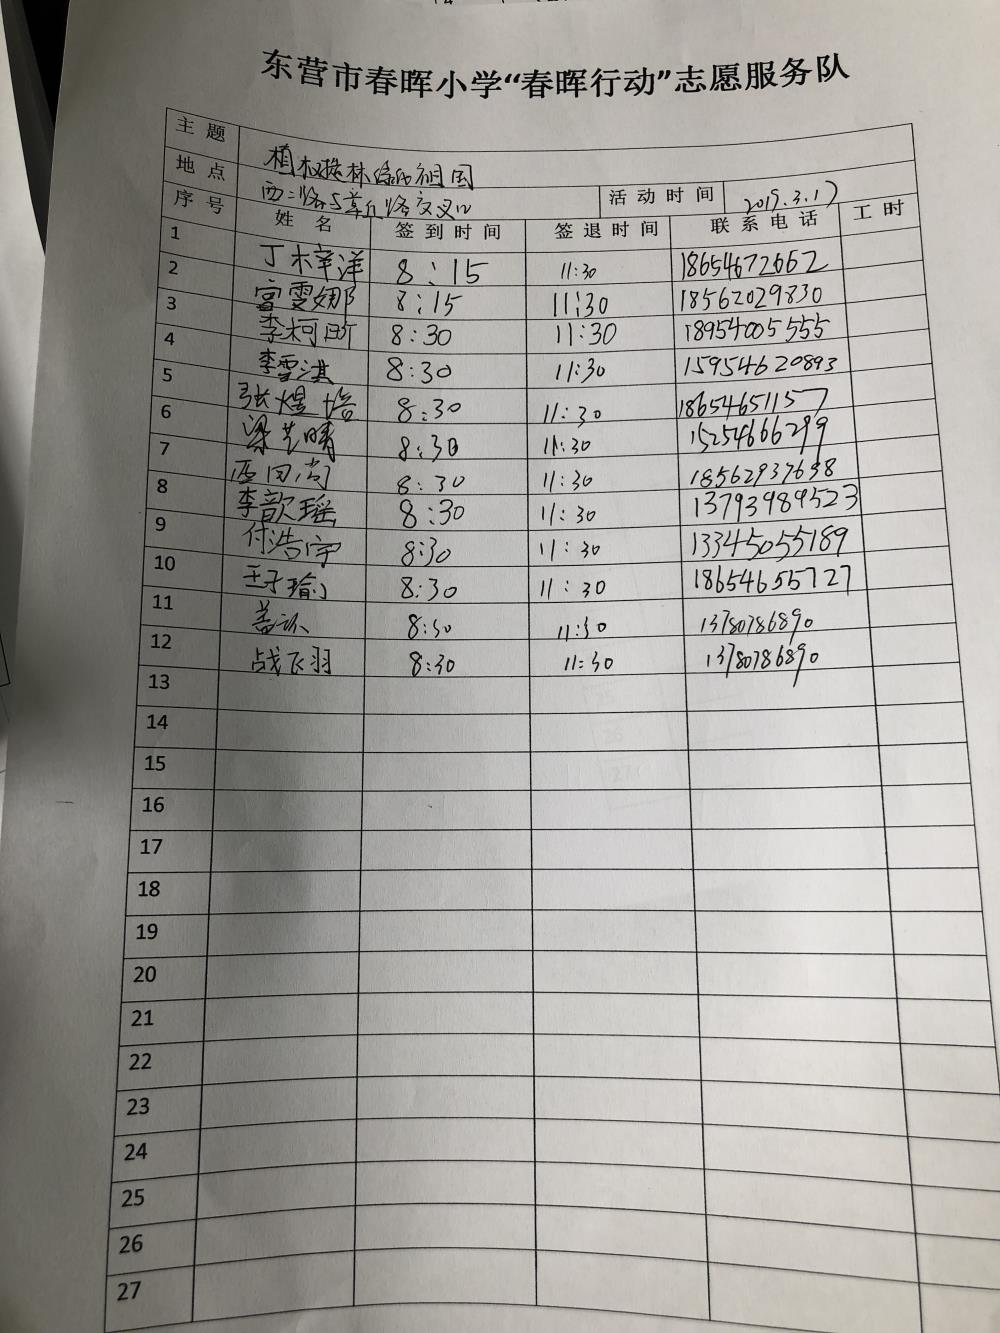 东营市春晖小学“春晖行动”志愿服务队
主题 植树造林绿化祖国
地点 西二路与 路交叉口 活动时间 2019.3.17
序号 姓名 签到时间 签退时间 联系电话 工时
1 丁梓洋 8:15 11:30 18654672662
2 富雯娜 8:15 11:30 18562029830
3 李柯 8:30 11:30 18954005555
4 李雪淇 8:30 11:30 15954620893
5 张煜培 8:30 11:30 18654651157
6 梁艺晴 8:30 11:30 15254666299
7 8:30 11:30 18562937638
8 李歆瑶 8:30 11:30 13793989523
9 付浩宇 8:30 11:30 13345055189
10 王子瑜 8:30 11:30 18654655727
11 8:30 11:30 13780786890
12 战飞羽 8:30 11:30 13780786890
13
14
15
16
17
18
19
20
21
22
23
24
25
26
27